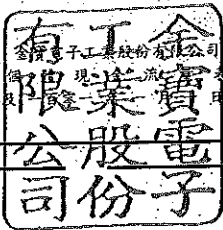 金寶電子
工業股份
有限公司
金寶電子工業股份有限公司